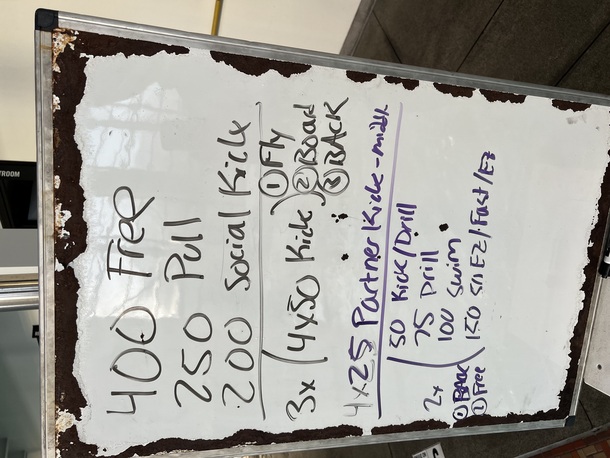 400 Free
250 Pull
200 Social Kick
3x (4x50 Kick) ① Fly
② Board
③ BACK
4x25 Partner Kick - middle
2x (50 Kick/Drill
75 Drill
① BACK 100 Swim
② Free 150 50 EZ/Fast/EZ
TROOM